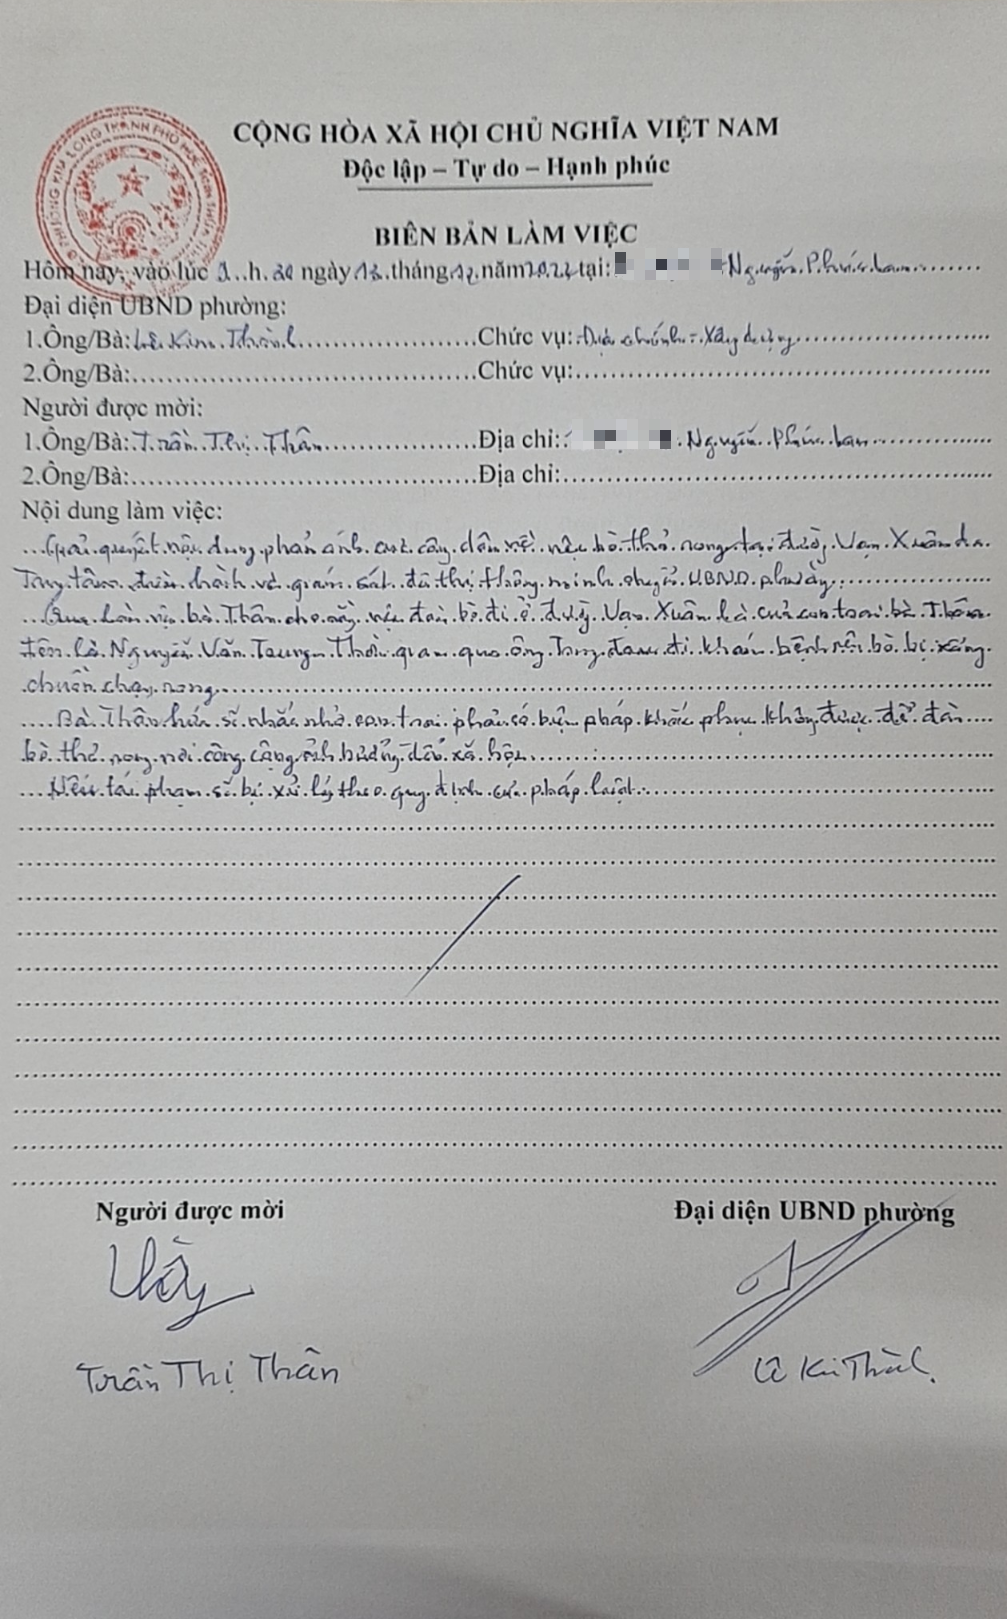 CỘNG HÒA XÃ HỘI CHỦ NGHĨA VIỆT NAM
Độc lập – Tự do – Hạnh phúc
BIÊN BẢN LÀM VIỆC
Hôm nay, vào lúc h.30 ngày 13 tháng 12 năm 2022 tại: Nguyễn Phúc Lan
Đại diện UBND phường:
1.Ông/Bà: Lê Kim Thành Chức vụ: Địa chính - Xây dựng
2.Ông/Bà: Chức vụ:
Người được mời:
1.Ông/Bà: Trần Thị Thân Địa chỉ: Nguyễn Phúc Lan
2.Ông/Bà: Địa chỉ:
Nội dung làm việc:
Giải quyết nội dung phản ánh của công dân việc nêu bò thả rong tại đường Vạn Xuân do
Trung tâm điều hành và giám sát đô thị thông minh chuyển UBND phường
Qua làm việc bà Thân cho rằng việc đàn bò đi ở đường Vạn Xuân là của con trai bà Thân
tên là Nguyễn Văn Trung. Thời gian qua ông Trung đang đi khám bệnh nên bò bị xổng
chuồng chạy rong
Bà Thân hứa sẽ nhắc nhở con trai phải có biện pháp khắc phục không được để đàn
bò thả rong nơi công cộng ảnh hưởng đến xã hội
Nếu tái phạm sẽ bị xử lý theo quy định của pháp luật.
Người được mời Đại diện UBND phường
Trần Thị Thân Lê Kim Thành